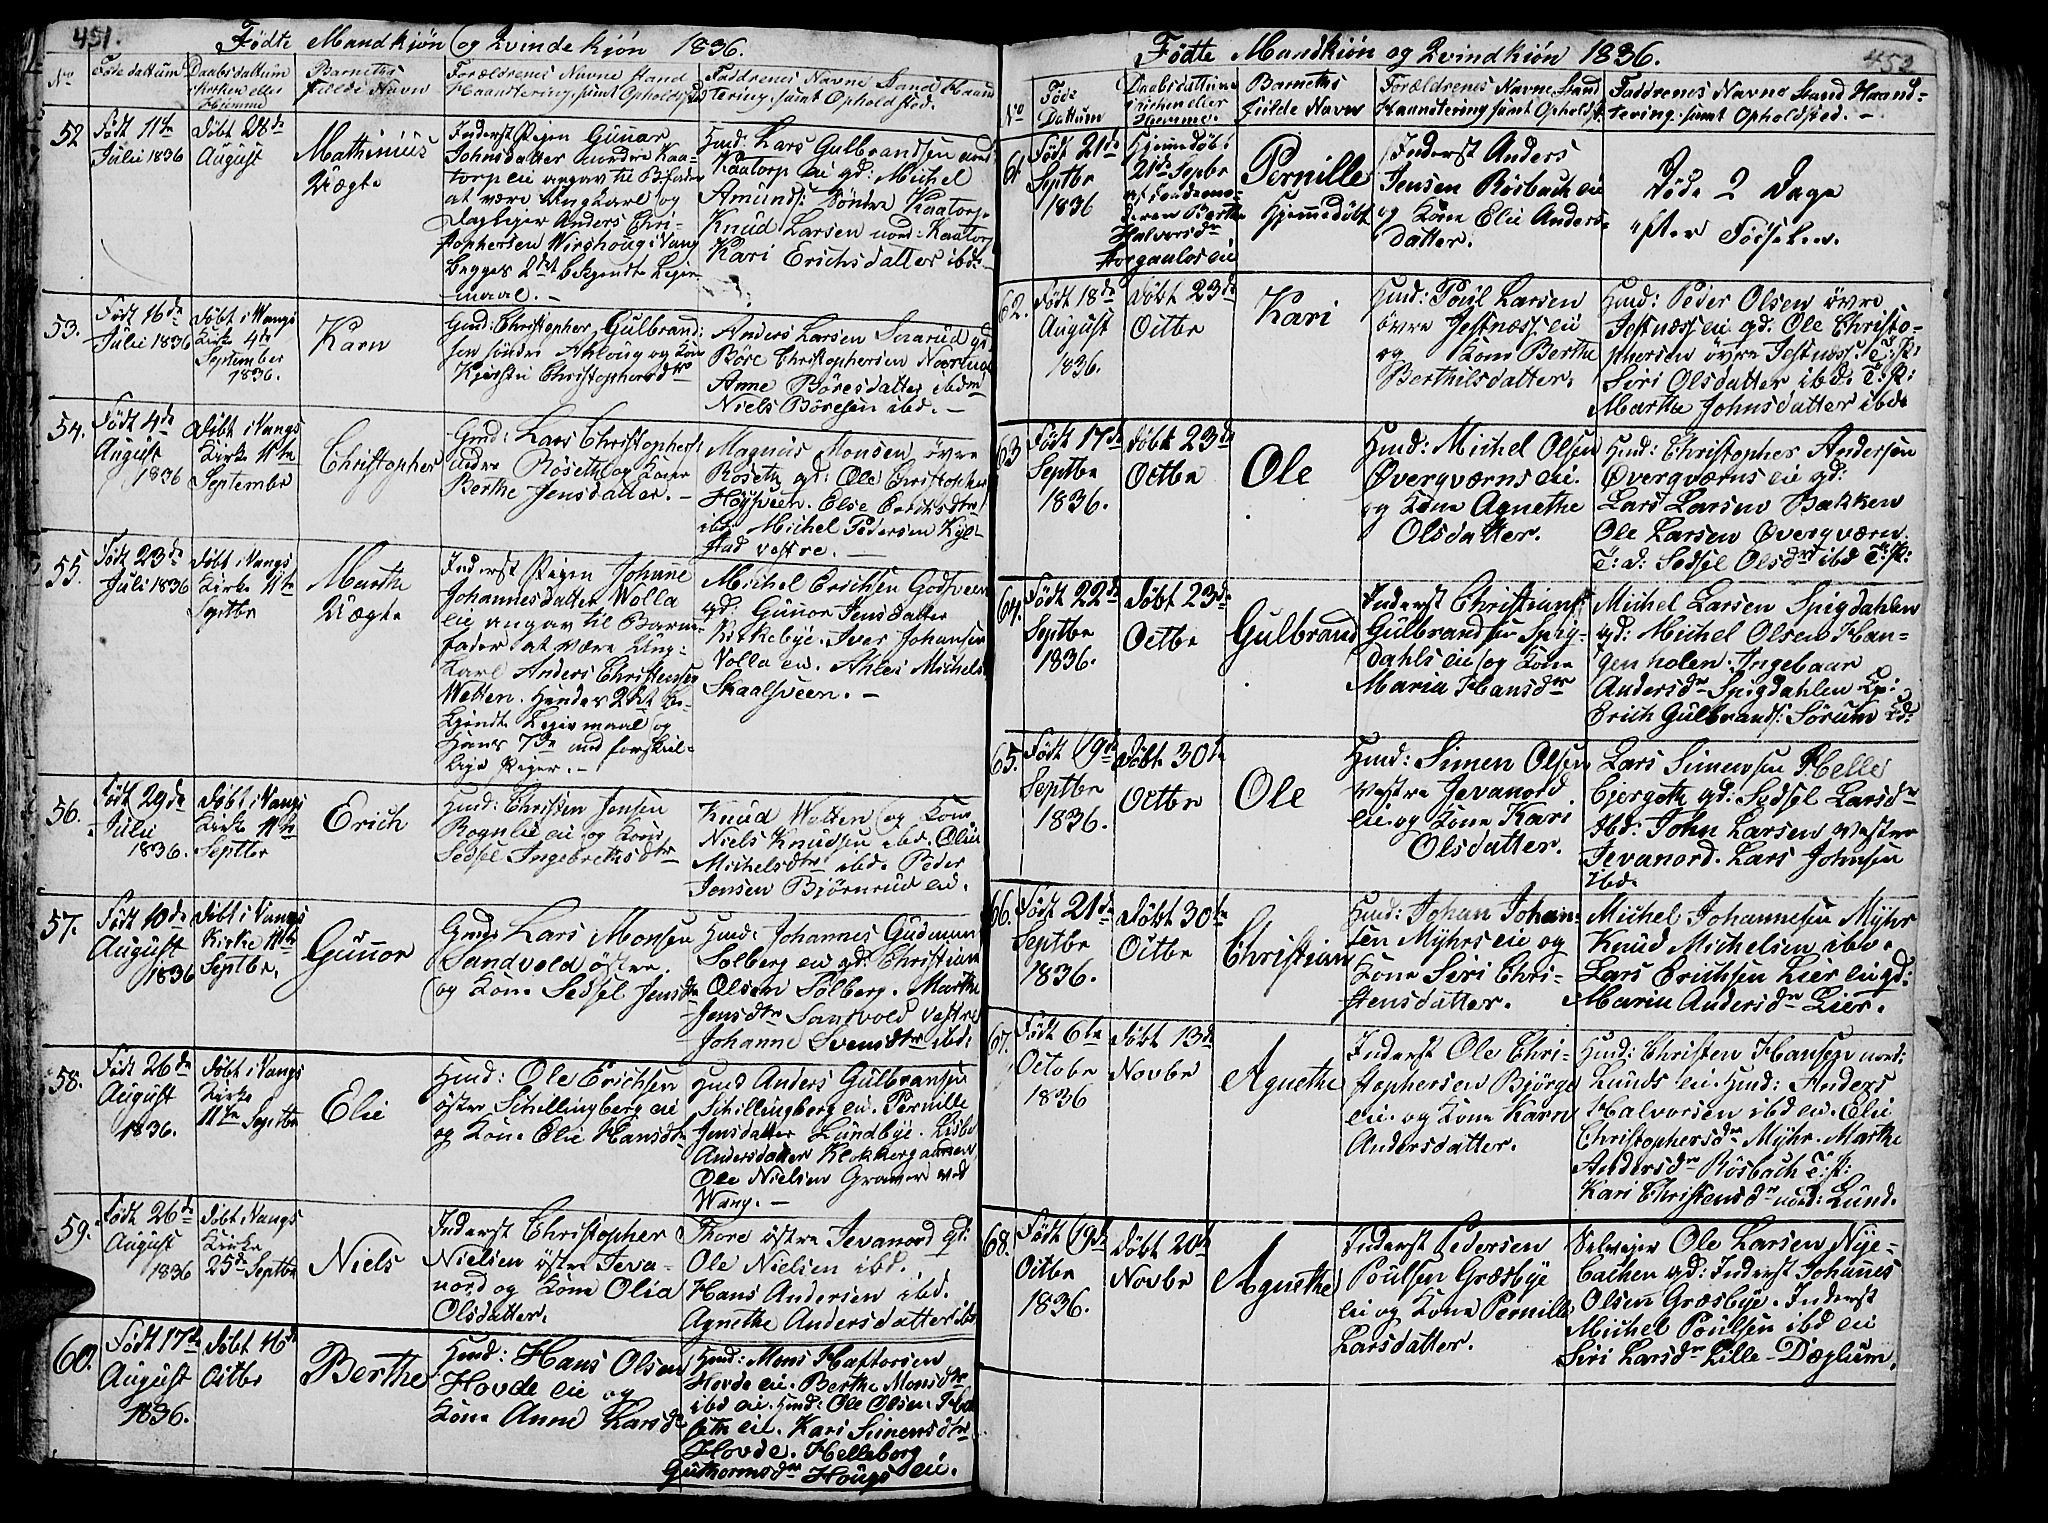 451.
Fødte Mandkjøn og Qvindekjøn 1836.
No Føde dattum Daabsdattum i Kirken eller Hjemme Barnets fulde Navn Forældrenes Navne Stand Haandtering samt Opholdsted Faddrenes Navne Stand Haandtering samt Opholdsted.
52
Født 11te
Julii 1836
Døbt 28de
August
Mathinius
Uægte
Inderst Pigen Gunor
Johnsdatter nordre Kaa-
torp eie angav til B.fader
at være Ungkarl og
Daglejer Anders Chri-
stophersen Wirshoug i Vang
begges 2det bekjendte Leier-
maal. -
Hmd: Lars Gulbrandsen nord
Kaatorp eie gd: Michel
Amunds: Søndre Kaatorp
Knud Larsen nord: Kaatorp
Kari Erichsdatter ibd. -
53.
Født 16de
Julii 1836
Døbt i Vangs
Kirke 4de
September
1836.
Karn
Gmd: Christopher Gulbrand-
sen søndre Ahloug og Kone
Kjersti Christophersdtr
Anders Larsen
Børe Christophersen
Anne Børesdatter ibdm
Niels Børesen ibd. -
54.
Født 4de
August
1836
Døbt i Vangs
Kirke 11te
September
Christopher
Gmd: Lars Christophers:
Røseth og Kone
Berthe Jensdatter. -
Magnus Monsen øvre
Roseth gd: Ole Christophers
Høysveen. Else Erichsdtr
ibd Michel Pedersen Kyl-
stad vestre. -
55.
Født 23de
Juli 1836
Døbt i Vangs
Kirke 11te
Septbr
Marthe
Uægte
Inderst Pigen Johane
Johannesdatter Wolla
eie angav til Barne
fader at være Ung-
Karl Anders Christensen
Wetten. Hendes 2det be-
kjendte Leiermaal og
Hans 7de med forskiel-
lige Piger. -
Michel Erichsen Godsveen
gd: Gunor Jensdatter
Kirkebye. Iver Johansen
Volla eie. Ahlei Michels
Skaalsveen. -
56.
Født 29de
Julii
1836.
Døbt i Vangs
Kirke 11te
Septbr
Erich
Hmd: Christen Jensen
Rognlie eie og Kone
Sedsel Ingebrethsdtr
Knud Wetten og Kone
Niels Knudsen ibd. Olia
Michelsdtr ibd. Peder
Jensen Bjørnrud eie.
57.
Født 10de
August
1836
Døbt i Vangs
Kirke 11te
Septbr,
Gunor
Gmd: Lars Monsen
Sandvold østre.
og Kone Sedsel Jensdtr
Hmd: Johannes Gudmun
Solberg eie gd: Christian
Olsen Solberg. Marthe
Jensdtr Sansvold vestre
Johanne Svensdtr ibd:
58.
Født 26de
August
1836.
Døbt i Vangs
Kirke
11te Septbr
Elie
Hmd: Ole Erichsen
østre Schillingberg eie
og Kone Elie Hansdtr
Hmd Anders Gulbransen
Schillingberg eie. Pernille
Jensdatter Lundbye. Lisbe
Andersdatter Klokkergaarden
Ole Nielsen Graver ved
Wang. -
59.
Født 26de
August
1836
Døbt Vangs
Kirke
25de Septbr
Niels
Inderst Christopher
Nielsen østre Jeva-
nord og Kone Olia
Olsdatter.
Thore østre Jevanord gd:
Ole Nielsen ibd.
Hans Andersen ibd.
Agnethe Andersdatter ibd
60.
Født 17de
August
1836.
Døbt 16de
Octbr
Berthe
Hmd: Hans Olsen
Hovde eie og
Kone Anne Larsdr
Hmd: Mons Haftorsen
Hovde eie. Berthe Monsdtr
ibd eie. Hmd: Ole Olsen
eie. Kari Simensdtr
Hovde. Helleborg
Guthormsdr Hougs eie.
452
Fødte Mandkiøn og Qvindkiøn 1836.
No Føde Dattum Daabsdattum i Kirken eller Hjemme. Barnets fulde Navn Forældrenes Navne Stand Haandtering samt Opholdst. Faddrenes Navne Stand Haand-
tering samt Opholdsted. -
61
Født 21de
Septbr
1836
Hjemmedøbt
21de Septbr
af Jordemo-
deren Berthe
Halvorsdr
eie
Pernille
Hjemmedøbt
Inderst Anders
Jensen Bøsbach eie
og Kone Elie Anders-
datter.
Døde 2 Dage
efter Fødselen.
62.
Født 18de
August
1836.
Døbt 23de
Octbr
Kari
Hmd: Poul Larsen
øvre Jestnæss eie
og Kone Berthe
Berthilsdatter.
Hmd: Peder Olsen øvre
Jestnæss eie gd: Ole Christo-
phersen øvre Jestnæss: T: p:
Siri Olsdatter ibd. T: p:
Marthe Johnsdatter ibd.
63
Født 17de
Septbr
1836.
Døbt 23de
Octbr
Ole
Hmd: Michel Olsen
Øvergværns eie.
og Kone Agnethe
Olsdatter.
Hmd: Christopher Andersen
Øvergværns eie gd:
Lars Larsen Bakken
Ole Larsen Øvergværn
T: d: Sedsel Olsdr ibd T: p:
64.
Født 22de
Septbr
1836.
Døbt 23de
Octbr
Gulbrand
Inderst Christian
Gulbrandsen Spig-
dahls eie og Kone
Maria Hansdr
Michel Larsen Spigdahlen
gd: Michel Olsen Han-
genholen. Ingebaar
Andersdr Spigdahlen
Erich Gulbrands: Sørum
65.
Født 19de
Septbr
1836.
Døbt 30te
Octbr
Ole
Hmd: Simen Olsen
vestre Jevanord
eie og Kone Kari
Olsdatter.
Lars Simensen Helle
bjergeth gd: Sedsel Larsdr
ibd: John Larsen vestre
Jevanord. Lars Johnsen
ibd.
66.
Født 21de
Septbr
1836.
Døbt 30te
Octbr
Christian
Hmd: Johan Johan-
sen Myhrs eie og
Kone Siri Chri-
stensdatter.
Michel Johannesen Myhr
Knud Michelsen ibd.
Lars Erichsen Lier eie gd:
Maria Andersdr Lier.
67.
Født 6te
Octobr
1836
Døbt 13de
Novbr
Agnethe
Inderst Ole Chri-
stophersen Bjørge
eie. og Kone Karn
Andersdatter.
Hmd: Christen Hansen nord:
Lunds eie. Hmd: Anders
Halvorsen ibd eie. Elie
Christophersdr Myhr. Marthe
Andersdr Bøsbach T: p:
Kari Christensdr nord: Lund.
68.
Født 19de
Octbr
1836.
Døbt 20de
Novbr
Agnethe
Inderst Pedersen
Poulsen Græsbye
eie og Kone Pernille
Larsdatter.
Selveier Ole Larsen Nye-
bachen gd: Inderst Johanes
Olsen Græsbye. Inderst
Michel Poulsen ibd eie
Siri Larsdr Lille-Døglum.